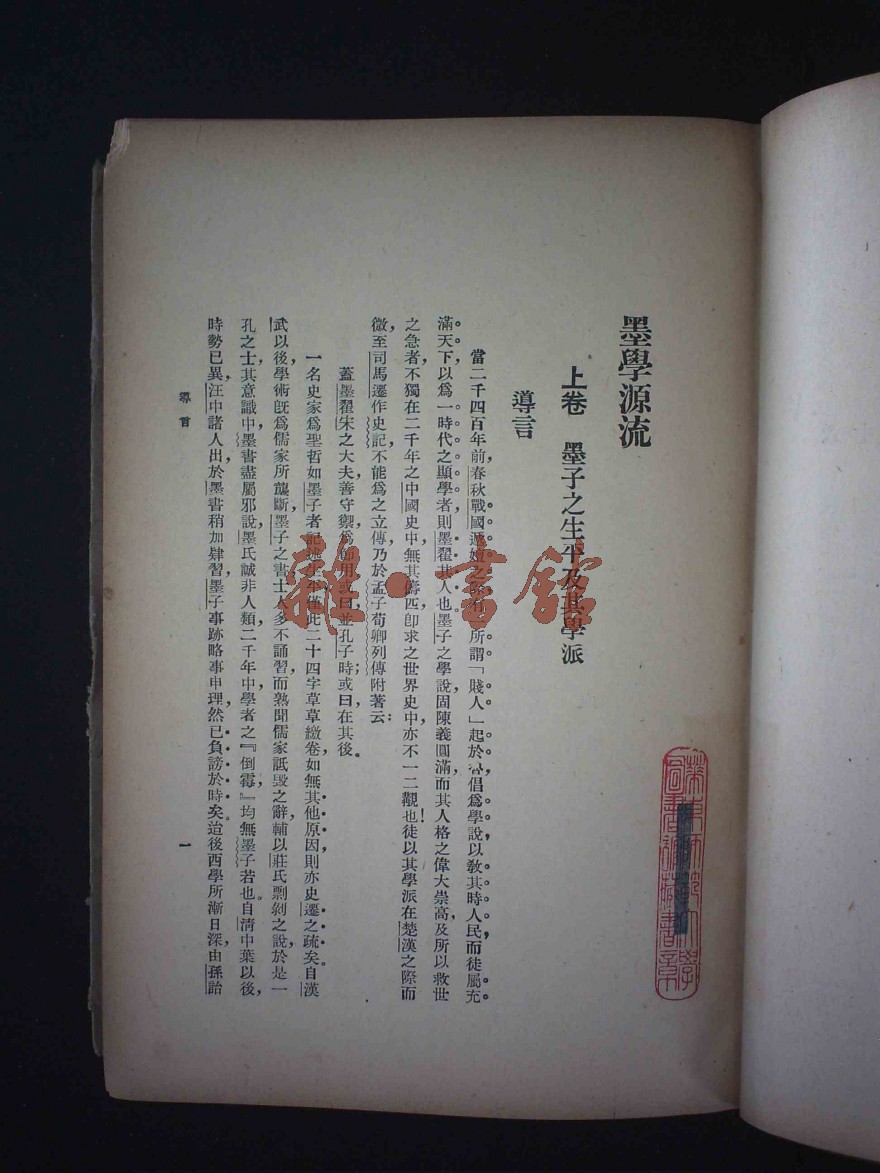 墨學源流
上卷　墨子之生平及其學派
導言
當二千四百年前，春秋戰國遞嬗之際，有所謂「賤人」起於魯，倡爲學說，以敎其時人民，而徒屬充
滿天下，以爲一時代之顯學者，則墨翟其人也。墨子之學說，固陳義圓滿，而其人格之偉大崇高，及所以救世
之急者，不獨在二千年之中國史中，無其儔匹，卽求之世界史中，亦不一二觀也！徒以其學派在楚漢之際而
微，至司馬遷作史記，不能爲之立傳，乃於孟子荀卿列傳附著云：
蓋墨翟宋之大夫，善守禦，爲節用，或曰並孔子時；或曰在其後。
一名史家爲聖哲如墨子者記述生平，僅此二十四字，草草繳卷，如無其他原因，則亦史遷之疏矣。自漢
武以後，學術旣爲儒家所壟斷，墨子之書，士人多不誦習，而熟聞儒家詆毀之辭，輔以莊氏剽剝之說，於是一
孔之士，其意識中，墨書盡屬邪說，墨氏誠非人類，二千年中學者之『倒霉』，均無墨子若也。自清中葉以後，
時勢已異，汪中諸人出，於墨書稍加肄習，墨子事跡，略事申理，然已負謗於時矣。迨後西學所漸日深，由孫詒
導言
一
雜·書館
華東師範大學
圖書館藏書章